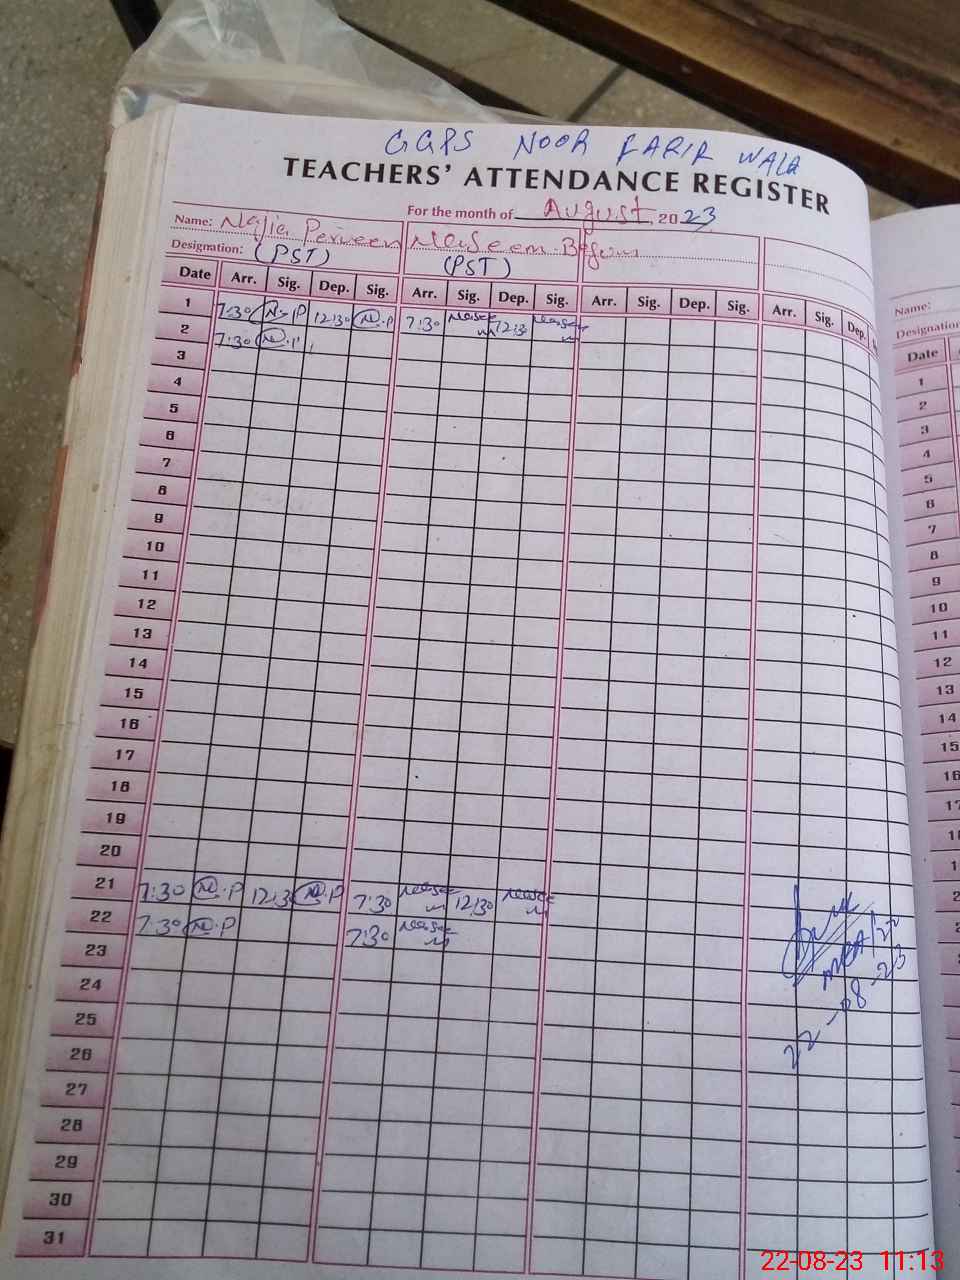 GGPS NOOR FARIR WALA
TEACHERS' ATTENDANCE REGISTER
For the month of August 2023
Name: Najia Perveen Naseem Begum
Designation: (PST) (PST)
Date Arr. Sig. Dep. Sig. Arr. Sig. Dep. Sig. Arr. Sig. Dep. Sig. Arr. Sig. Dep.
1 7:30 N.P 12:30 N.P 7:30 Naseem 12:30 Naseem
2 7:30 N.P
3
4
5
6
7
8
9
10
11
12
13
14
15
16
17
18
19
20
21 7:30 N.P 12:30 N.P 7:30 Naseem 12:30 Naseem
22 7:30 N.P 7:30 Naseem
23
24
25
26
27
28
29
30
31
MEA/22
22-08-23
Name:
Designation
Date
1
2
3
4
5
6
7
8
9
10
11
12
13
14
15
16
22-08-23 11:13